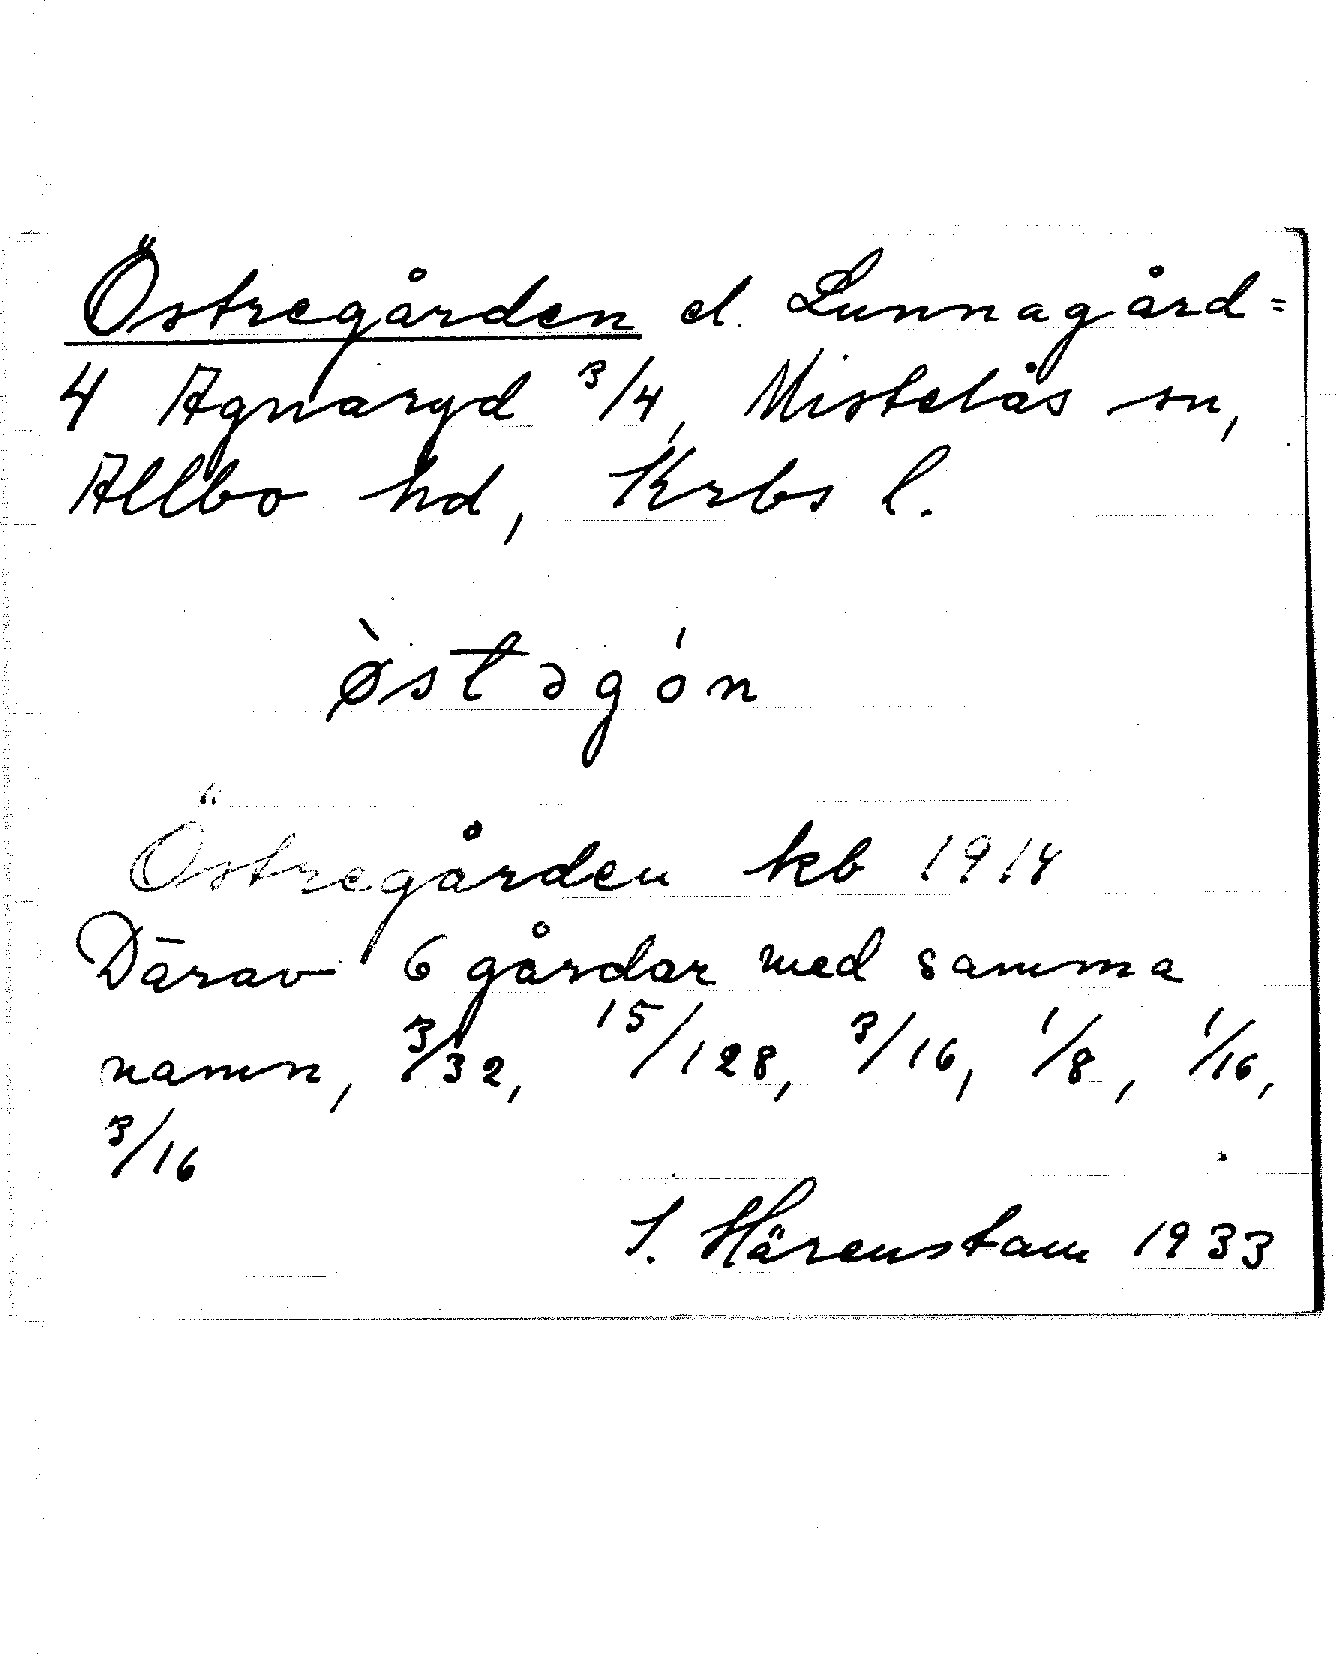 Östregården el. Lunnagård =
4 Agnaryd 3/4, Mistelås sn,
Allbo hd, Krbs l.
ø̀stəgón
Östregården kb 1914
Därav 6 gårdar med samma
namn, 3/32, 15/128, 3/16, 1/8, 1/16,
3/16
I. Härenstam 1933